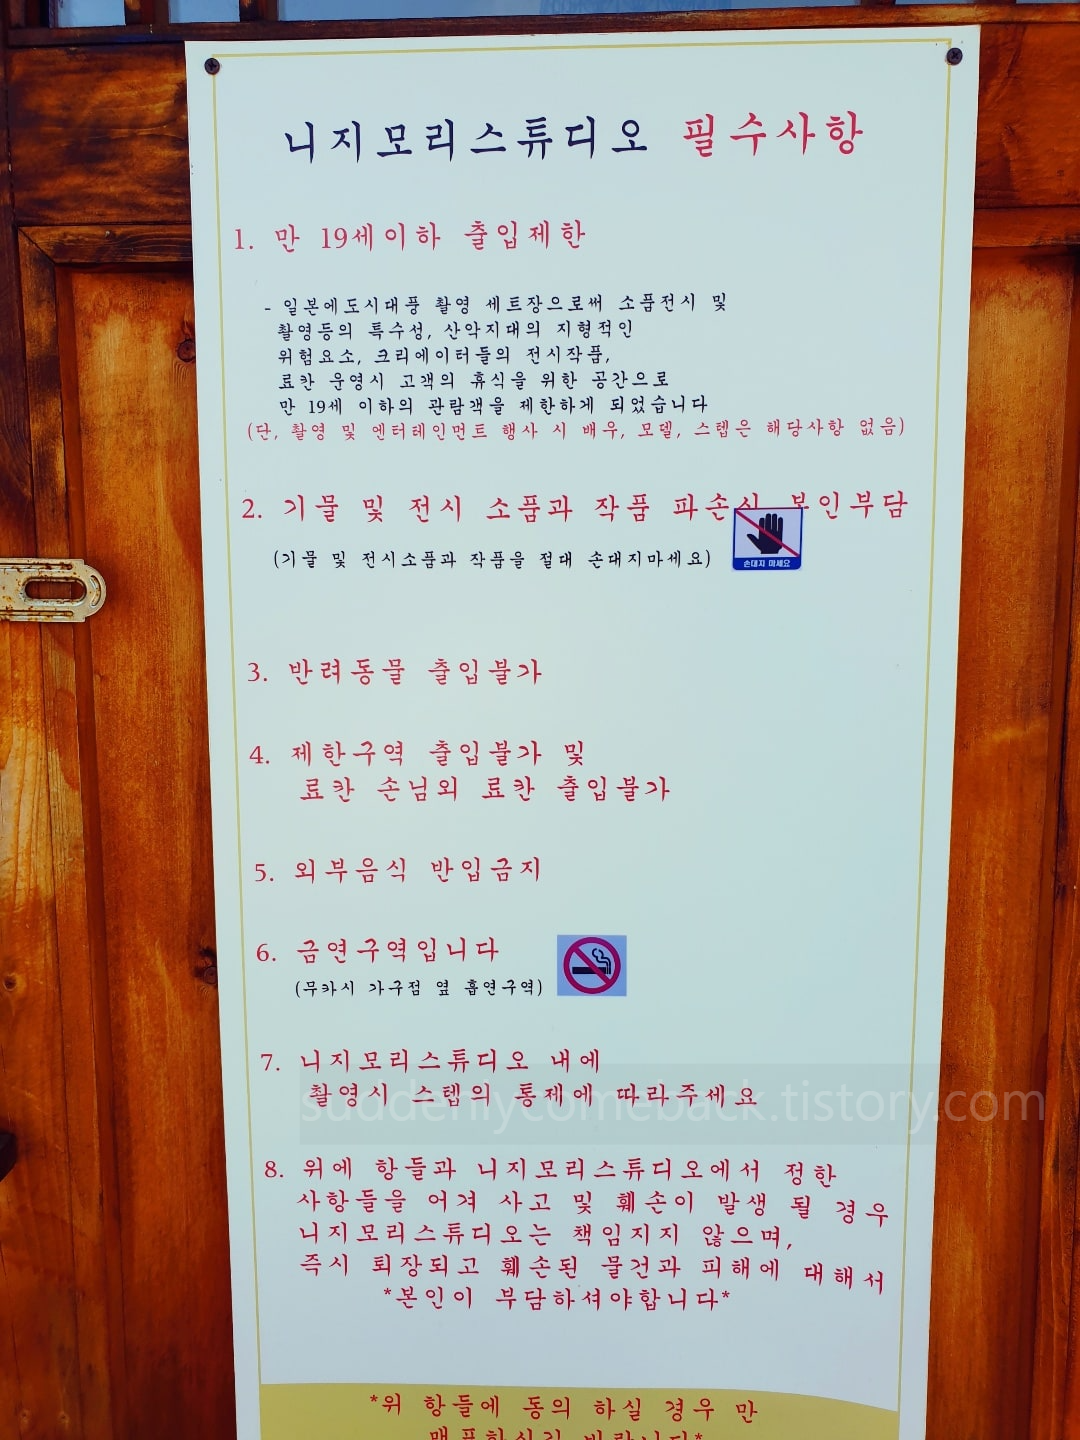 니지모리스튜디오 필수사항
1. 만 19세이하 출입제한
- 일본에도시대풍 촬영 세트장으로써 소품전시 및
촬영등의 특수성, 산악지대의 지형적인
위험요소, 크리에이터들의 전시작품,
료칸 운영시 고객의 휴식을 위한 공간으로
만 19세 이하의 관람객을 제한하게 되었습니다
(단, 촬영 및 엔터테인먼트 행사 시 배우, 모델, 스텝은 해당사항 없음)
2. 기물 및 전시 소품과 작품 파손시 본인부담
(기물 및 전시소품과 작품을 절대 손대지마세요)
손대지 마세요
3. 반려동물 출입불가
4. 제한구역 출입불가 및
료칸 손님외 료칸 출입불가
5. 외부음식 반입금지
6. 금연구역입니다
(무카시 가구점 옆 흡연구역)
7. 니지모리스튜디오 내에
촬영시 스텝의 통제에 따라주세요
suddenlycomeback.tistory.com
8. 위에 항들과 니지모리스튜디오에서 정한
사항들을 어겨 사고 및 훼손이 발생 될 경우
니지모리스튜디오는 책임지지 않으며,
즉시 퇴장되고 훼손된 물건과 피해에 대해서
*본인이 부담하셔야합니다*
*위 항들에 동의 하실 경우 만